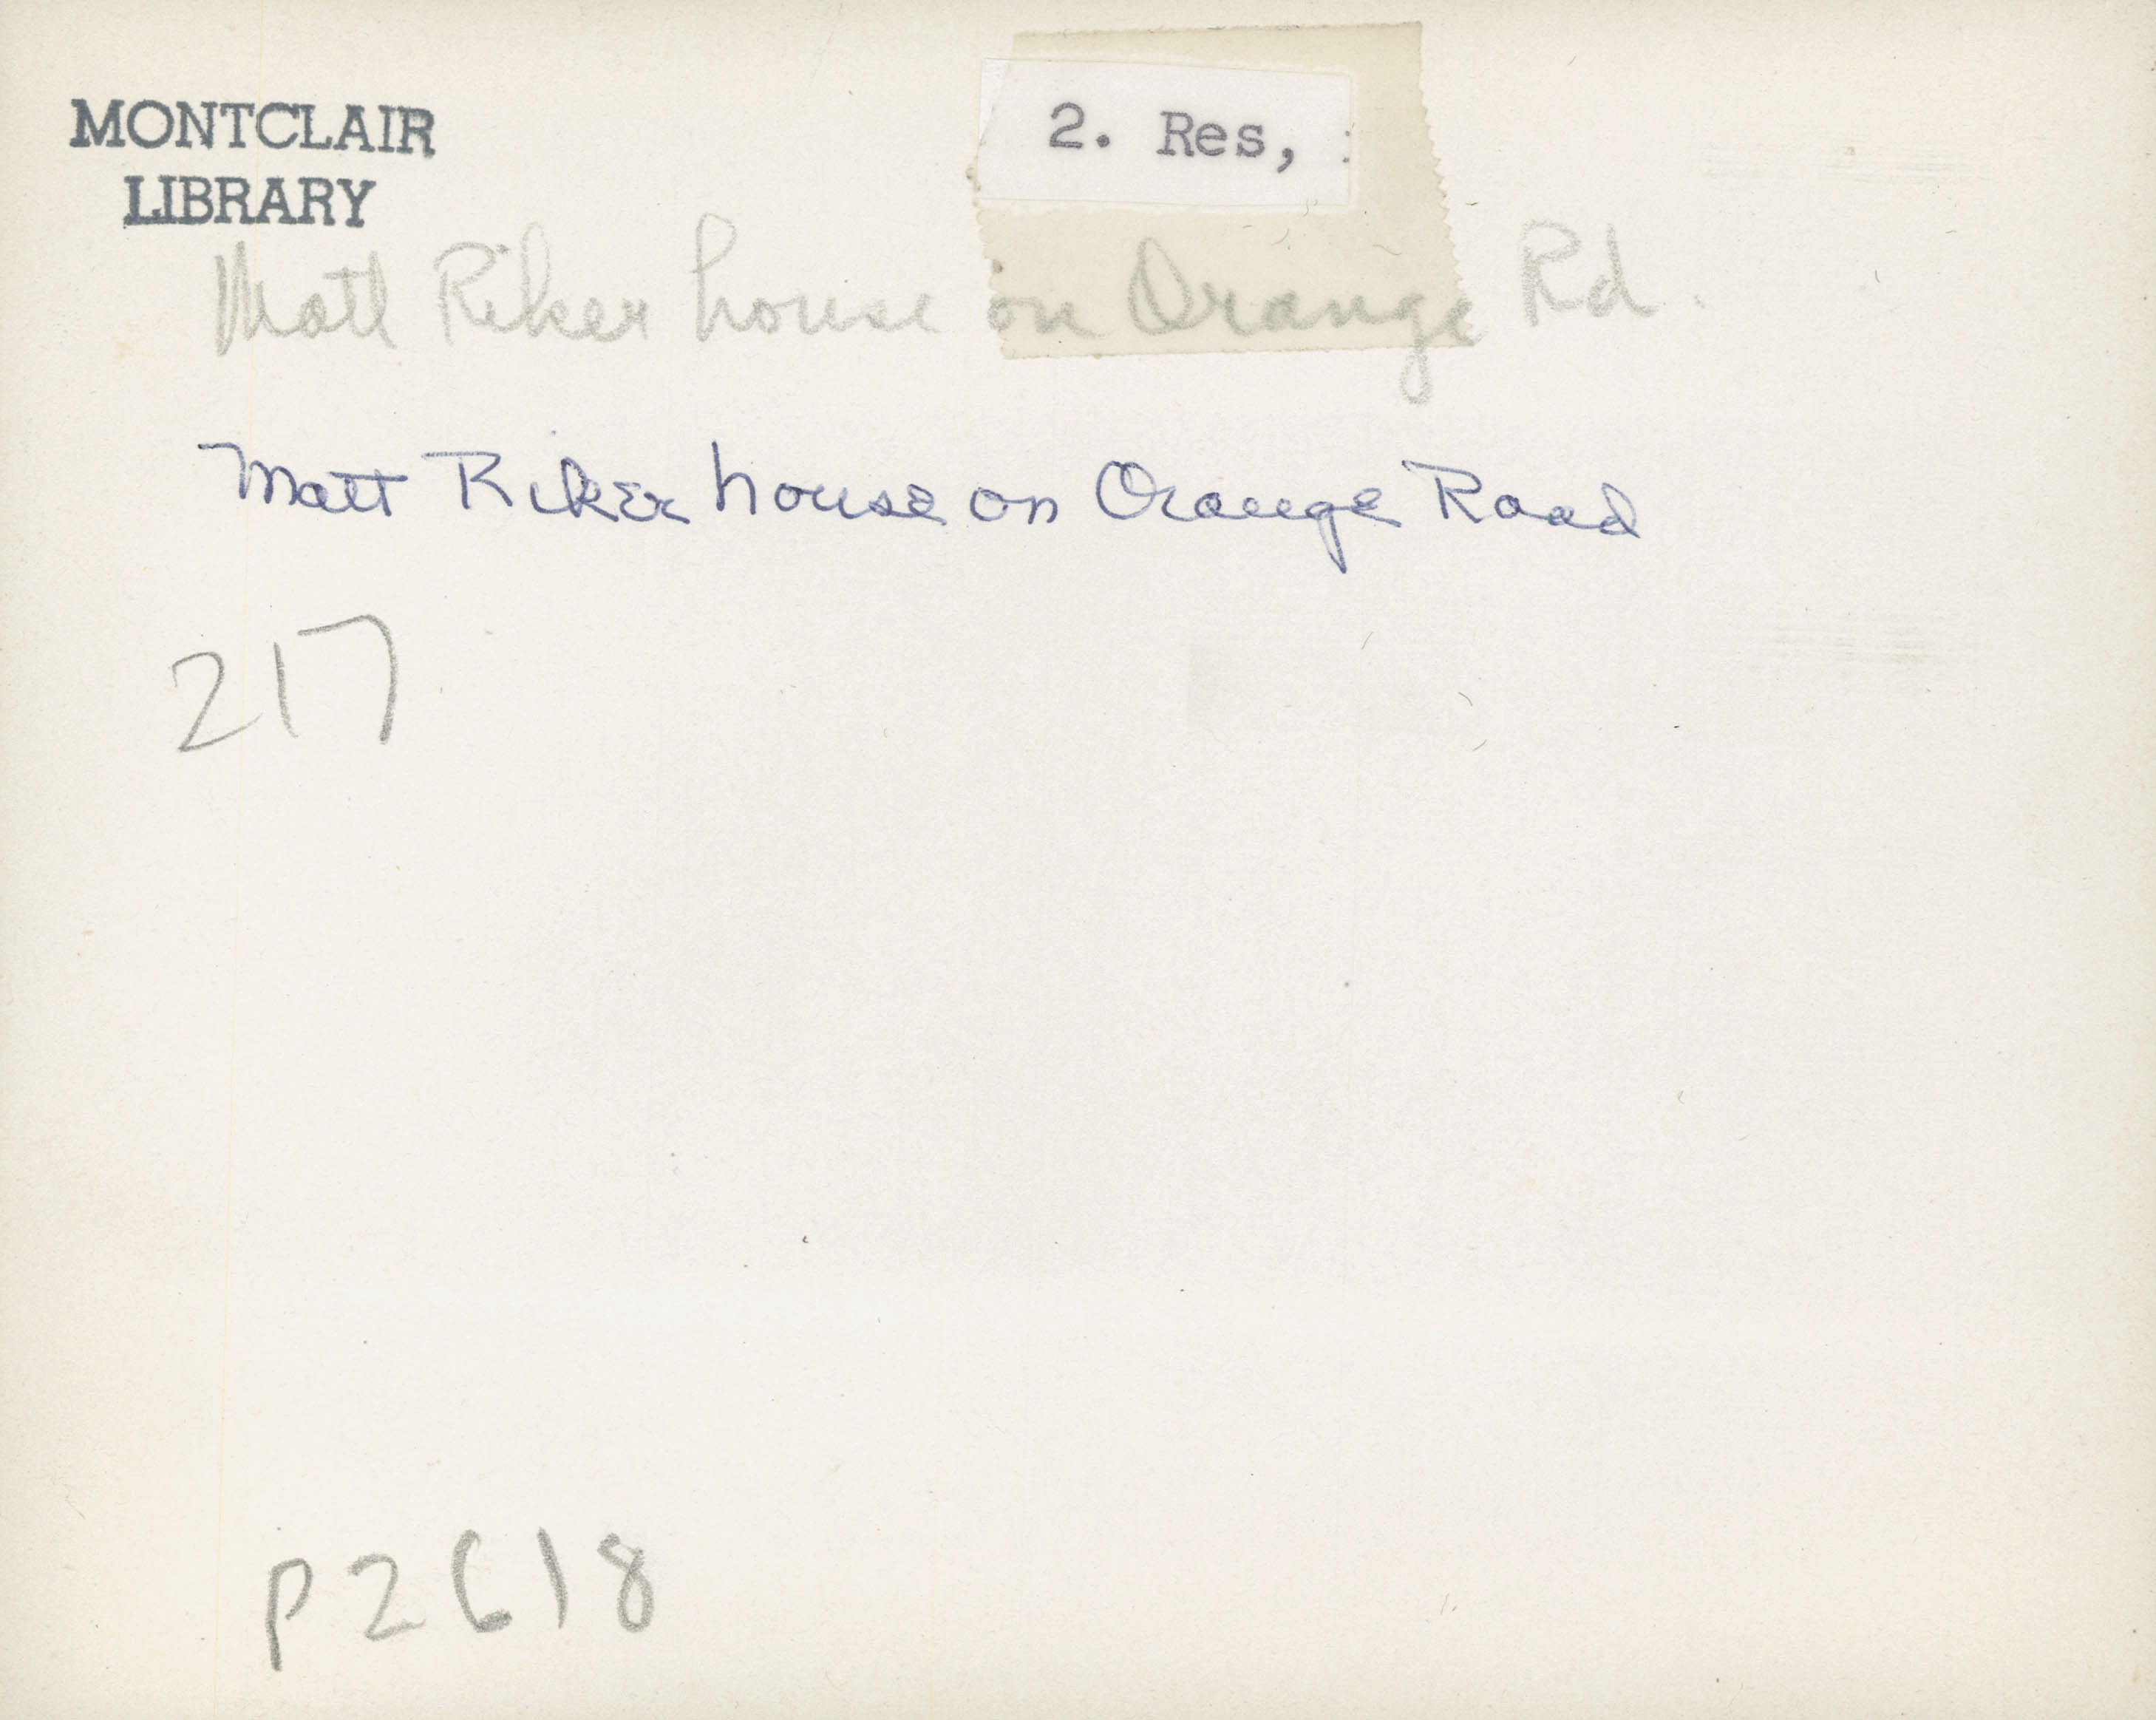 MONTCLAIR
LIBRARY
2. Res,
Matt Riker house on Orange Rd.
Matt Riker house on Orange Road
217
P2618